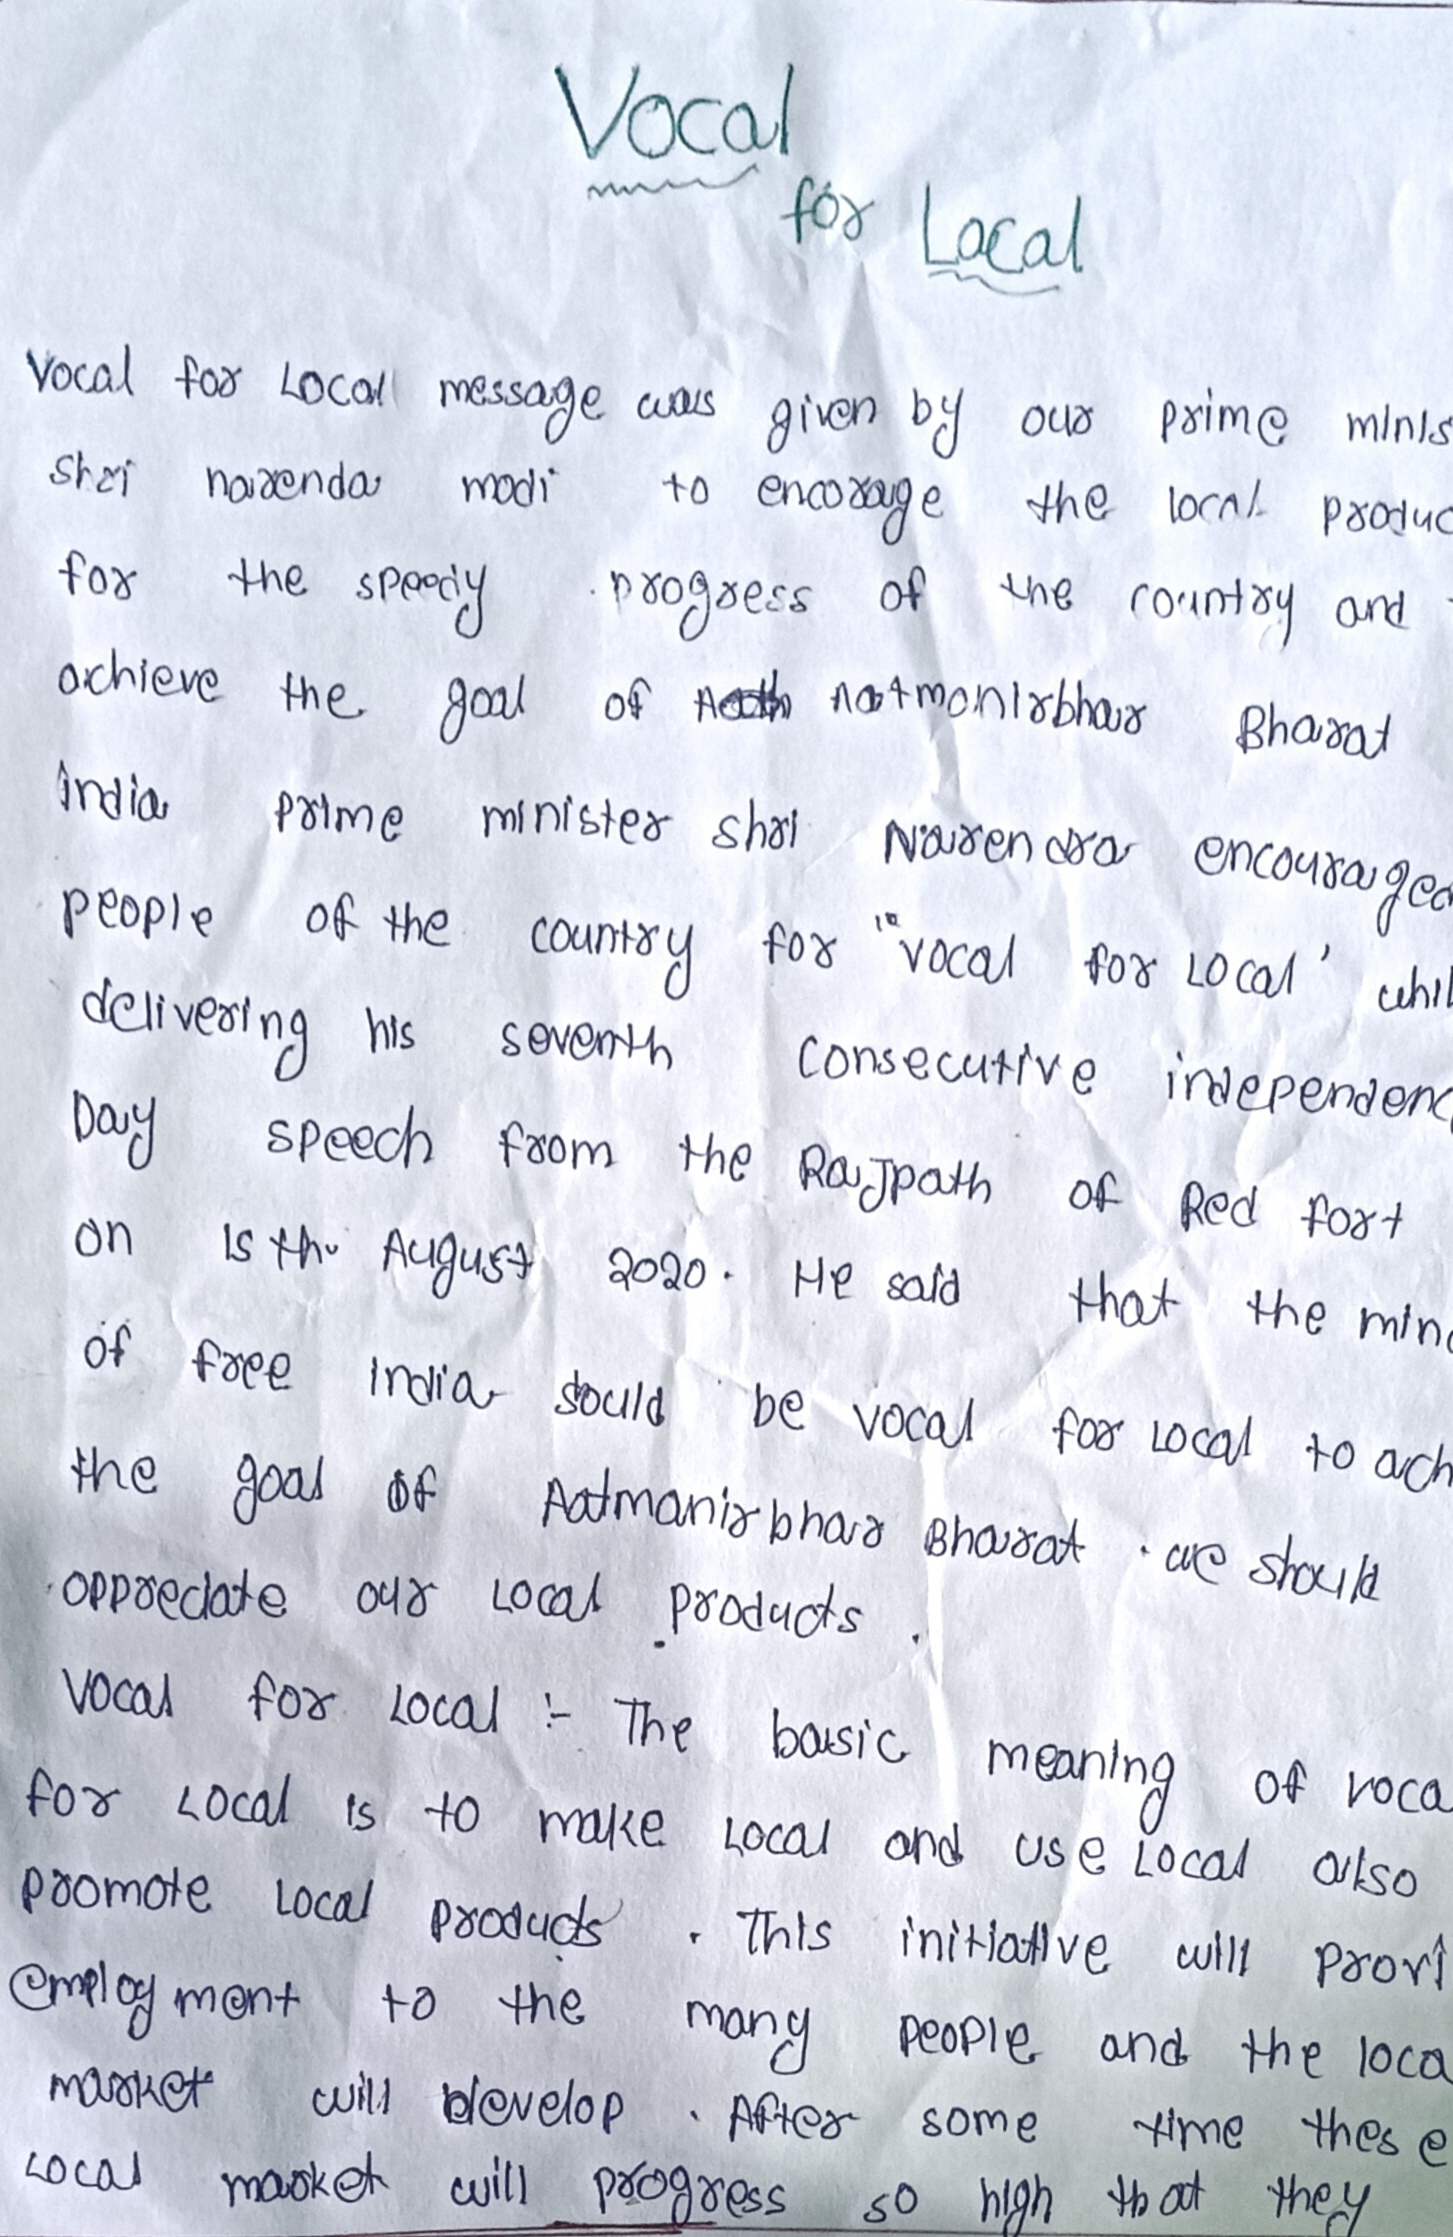 Vocal
for Local
Vocal for Local message was given by our prime minis
Shri narenda modi to encorage the local produc
for the speedy progress of the country and
achieve the goal of natmonirbhar Bharat
india prime minister shri Narendra encouraged
people of the country for "vocal for Local' whil
delivering his seventh Consecutive independenc
Day speech from the Rajpath of Red fort
on 15 th August 2020. He said that the mind
of free india sould be vocal for Local to ach
the goal of Aatmanirbhar Bharat . we should
oppreciate our Local products .
Vocal for Local :- The basic meaning of voca
for Local is to make Local and use Local also
promote Local products . This initiative will provi
employment to the many people and the loca
market will develop . After some time these
Local market will progress so high that they